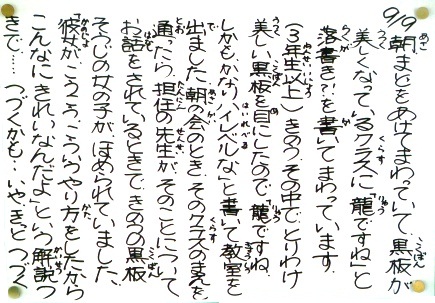 9/9 朝、まどをあけてまわっていて、黒板が
美しくなっているクラスに「龍ですね」と
落書き?を書いてまわっています。
(3年生以上)きのう、その中でとりわけ
美しい黒板を目にしたので「龍ですね。
しかもかなりハイレベルな」と書いて教室を
出ました。朝の会のとき、そのクラスのまえを
通ったら、担任の先生が、そのことについて
お話をされているときで、きのうの黒板
そうじの女の子が、ほめられていました。
「彼女が、こうこう、こういうやり方をしたから
こんなにきれいなんだよ」という解説つ
きで…。つづくかも…いや、きっとつづく